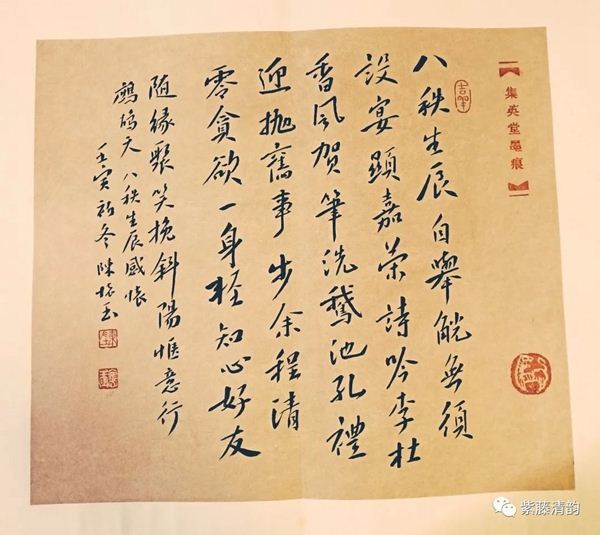 集英堂墨痕
八秩生辰自舉觥無須
設宴顯嘉榮詩吟李杜
香風賀筆洗鵝池孔禮
迎拋舊事步余程清
零貪欲一身輕知心好友
随緣聚笑挽斜陽愜意行
鷓鴣天八秩生辰感懷
壬寅初冬陳玉
紫藤清韵